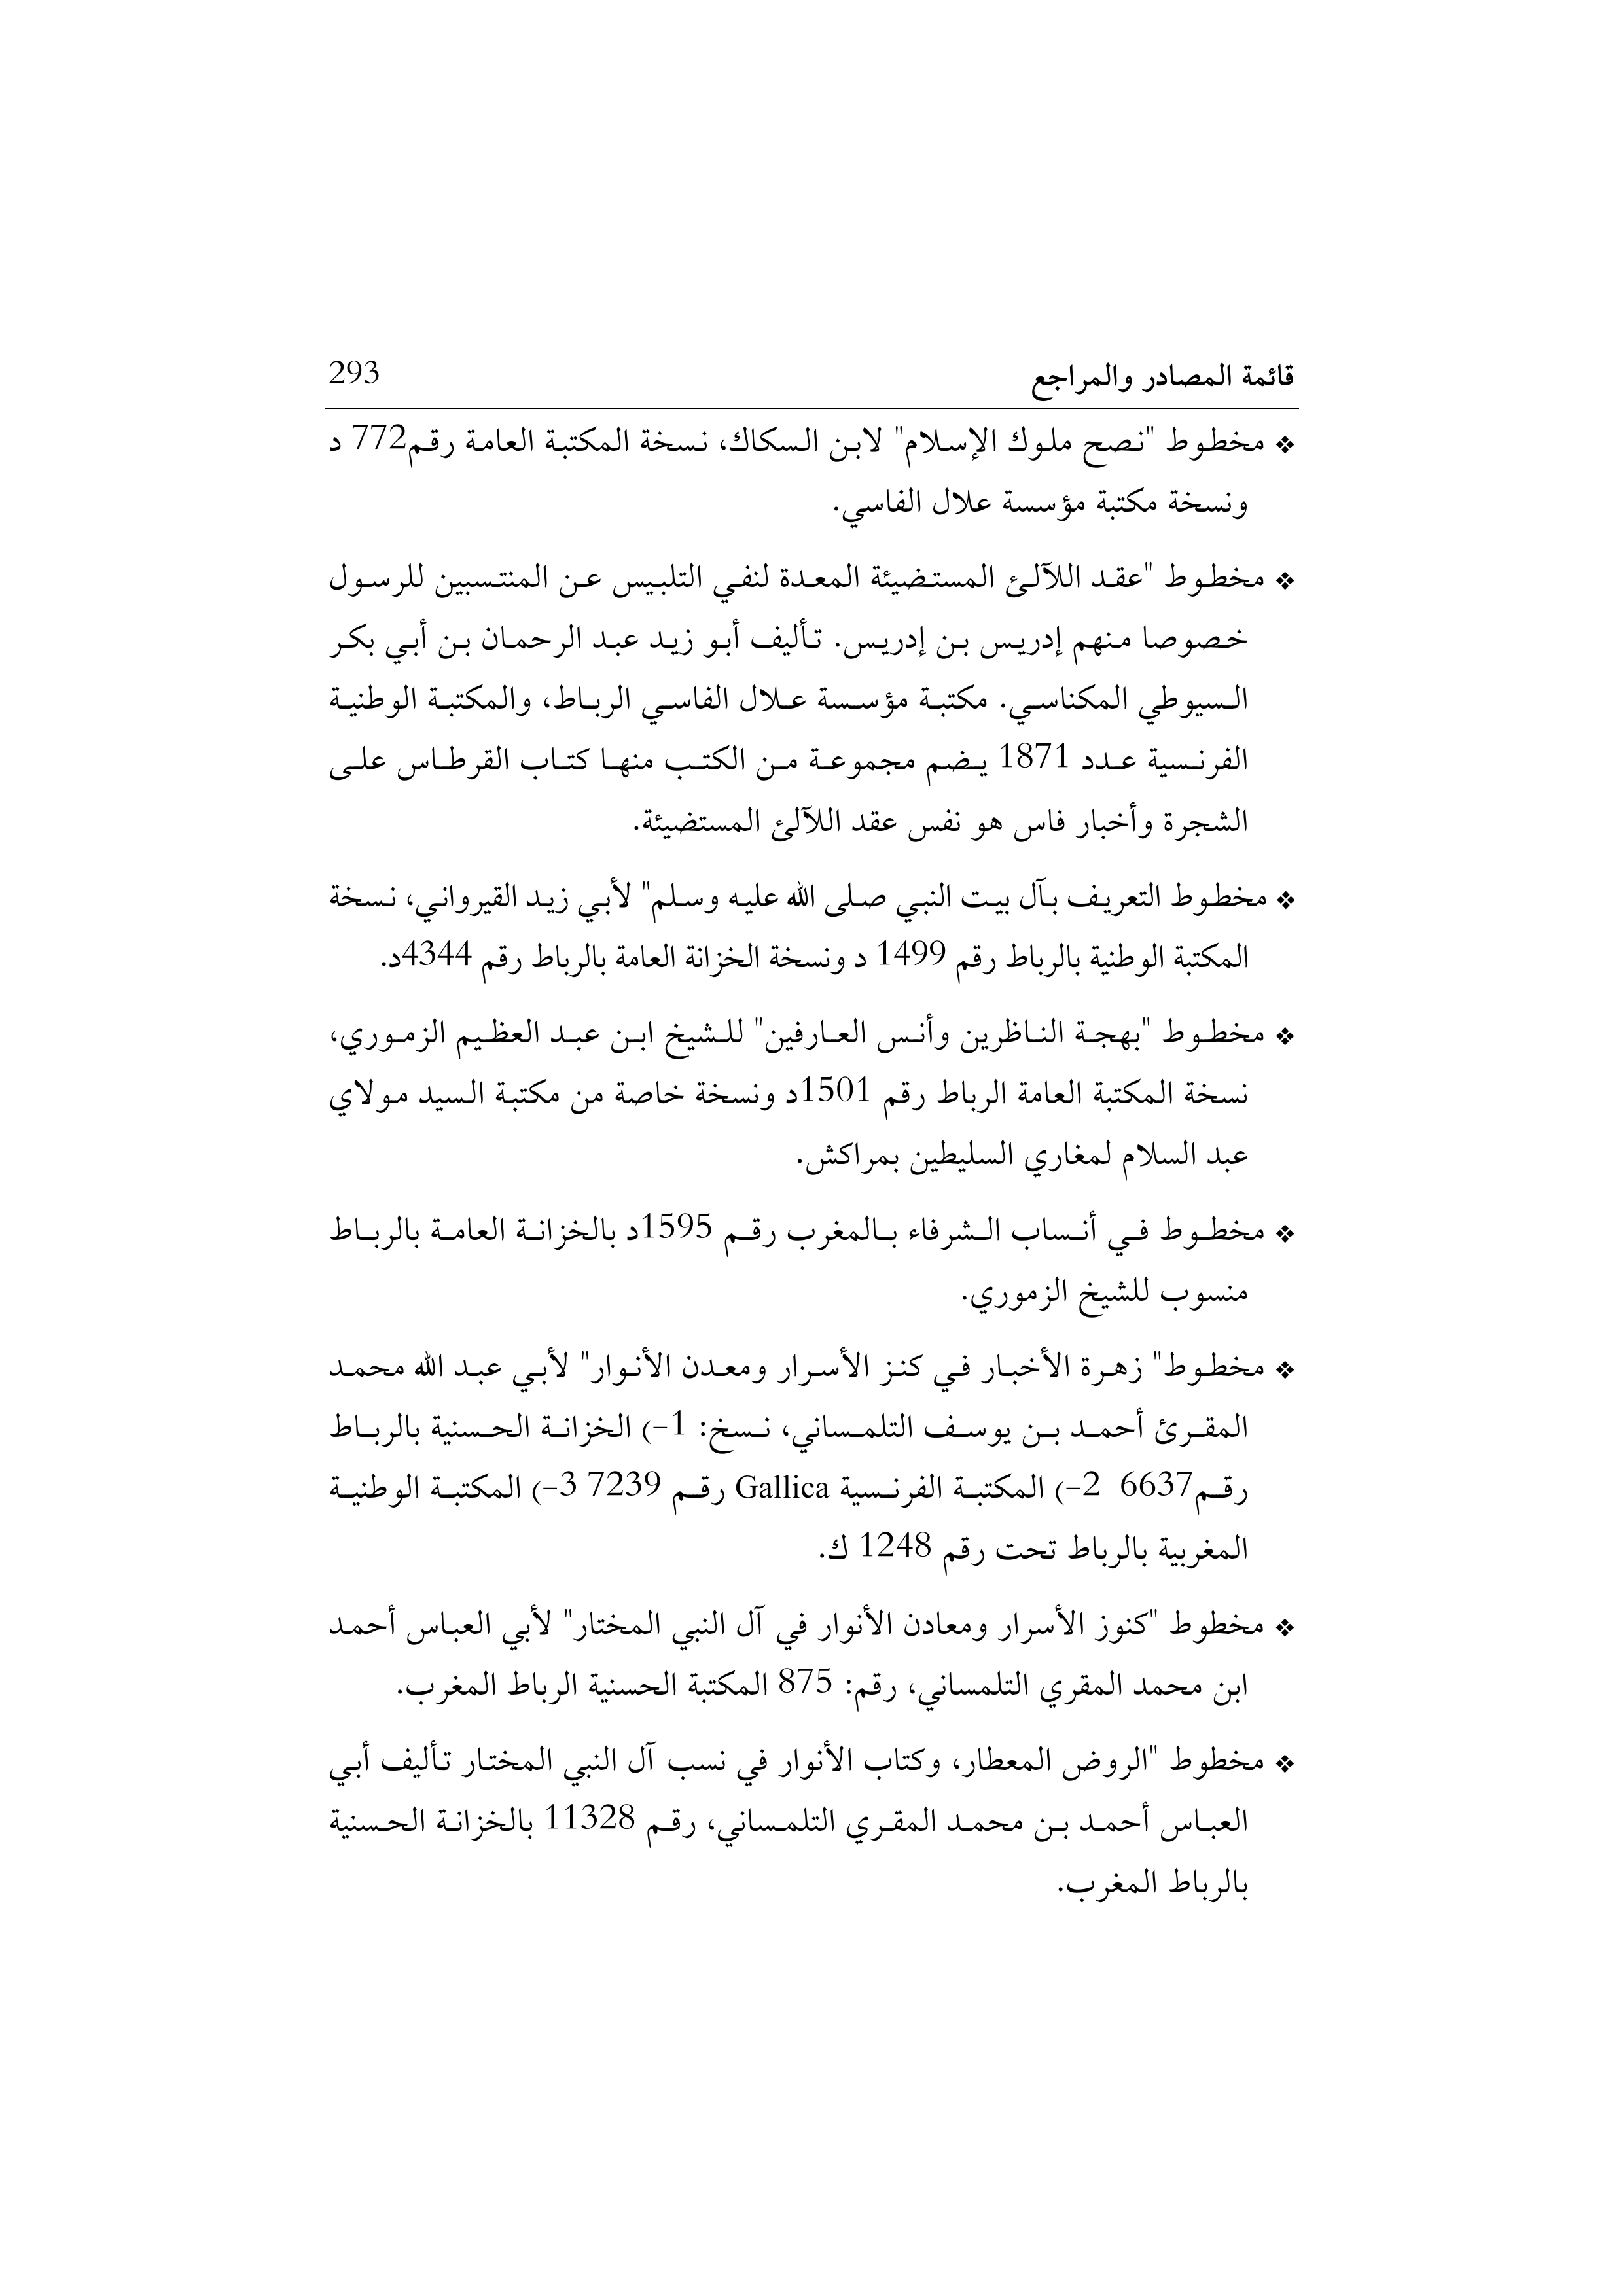 قائمة المصادر والمراجع 293
❖ مخطوط "نصح ملوك الإسلام" لابن السكاك، نسخة المكتبة العامة رقم772 د
ونسخة مكتبة مؤسسة علال الفاسي.
❖ مخطوط "عقد اللآلئ المستضيئة المعدة لنفي التلبيس عن المنتسبين للرسول
خصوصا منهم إدريس بن إدريس. تأليف أبو زيد عبد الرحمان بن أبي بكر
السيوطي المكناسي. مكتبة مؤسسة علال الفاسي الرباط، والمكتبة الوطنية
الفرنسية عدد 1871 يضم مجموعة من الكتب منها كتاب القرطاس على
الشجرة وأخبار فاس هو نفس عقد اللآلئ المستضيئة.
❖ مخطوط التعريف بآل بيت النبي صلى الله عليه وسلم" لأبي زيد القيرواني، نسخة
المكتبة الوطنية بالرباط رقم 1499 د ونسخة الخزانة العامة بالرباط رقم 4344د.
❖ مخطوط "بهجة الناظرين وأنس العارفين" للشيخ ابن عبد العظيم الزموري،
نسخة المكتبة العامة الرباط رقم 1501د ونسخة خاصة من مكتبة السيد مولاي
عبد السلام لمغاري السليطين بمراكش.
❖ مخطوط في أنساب الشرفاء بالمغرب رقم 1595د بالخزانة العامة بالرباط
منسوب للشيخ الزموري.
❖ مخطوط" زهرة الأخبار في كنز الأسرار ومعدن الأنوار" لأبي عبد الله محمد
المقرئ أحمد بن يوسف التلمساني، نسخ: 1-) الخزانة الحسنية بالرباط
رقم6637 2-) المكتبة الفرنسية Gallica رقم 7239 3-) المكتبة الوطنية
المغربية بالرباط تحت رقم 1248 ك.
❖ مخطوط "كنوز الأسرار ومعادن الأنوار في آل النبي المختار" لأبي العباس أحمد
ابن محمد المقري التلمساني، رقم: 875 المكتبة الحسنية الرباط المغرب.
❖ مخطوط "الروض المعطار، وكتاب الأنوار في نسب آل النبي المختار تأليف أبي
العباس أحمد بن محمد المقري التلمساني، رقم 11328 بالخزانة الحسنية
بالرباط المغرب.